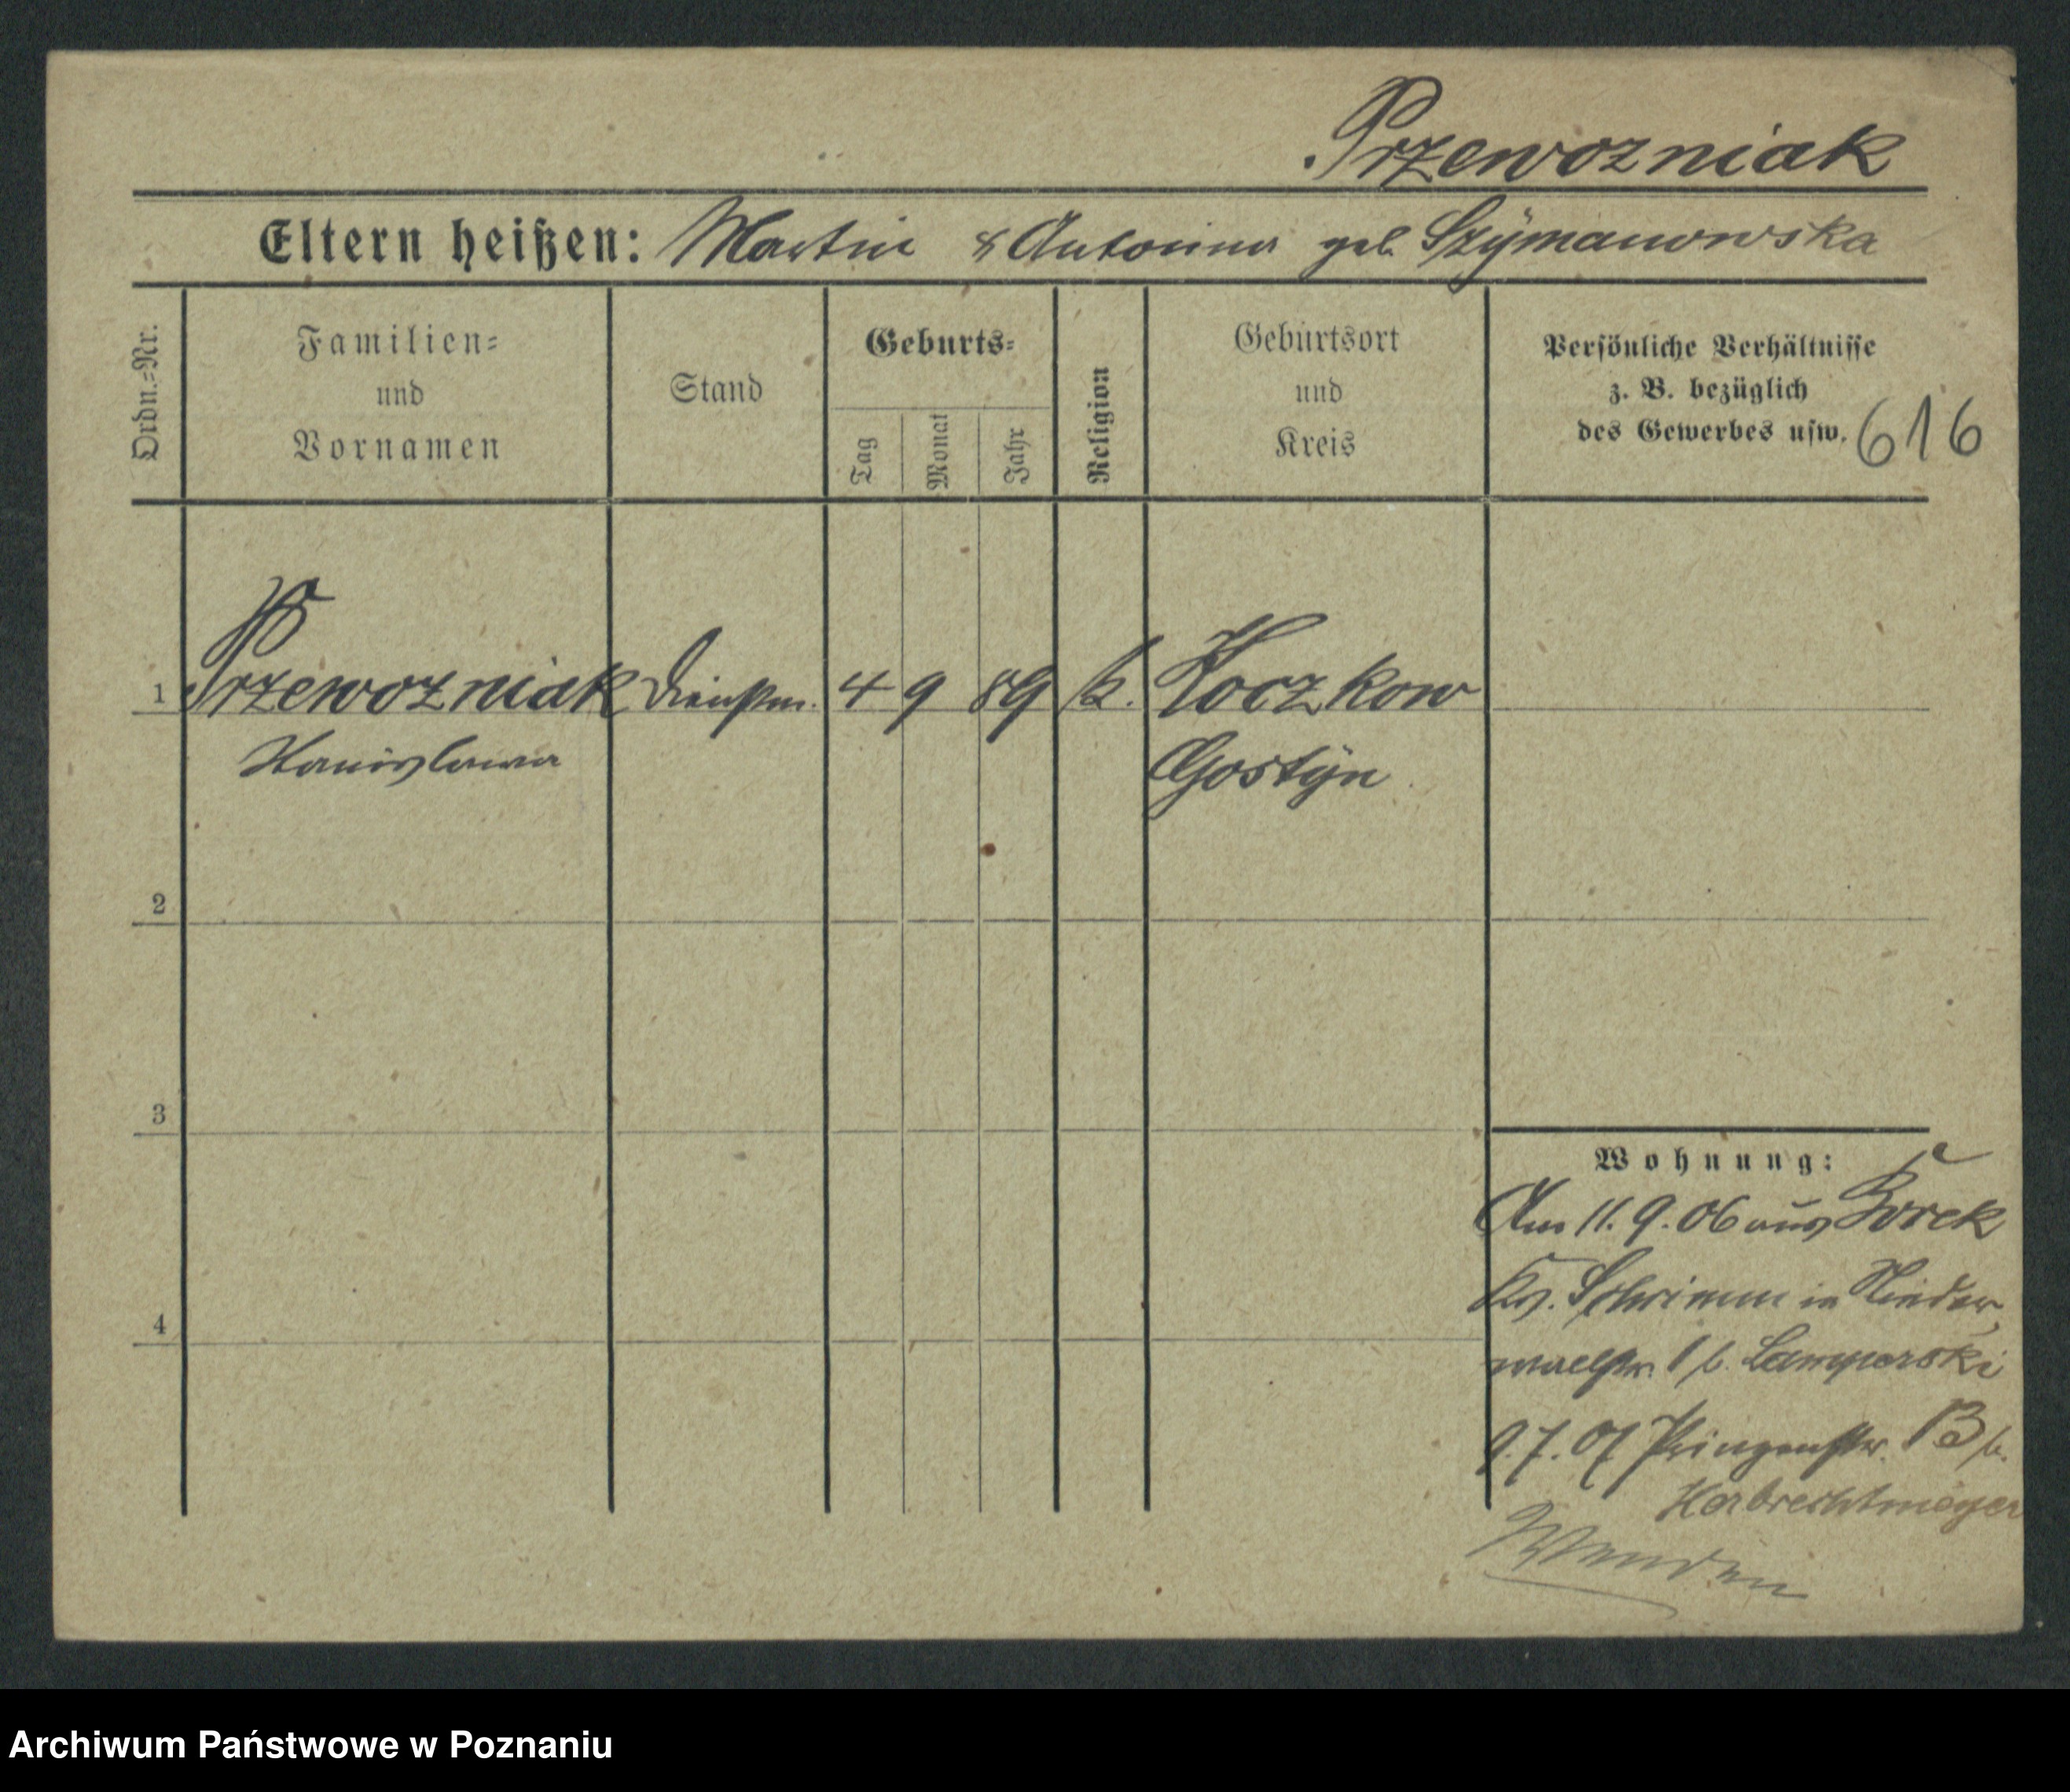 Przewozniak
Eltern heißen: Martin & Antonina geb. Szÿmanowska
Ordn.=Nr.
Familien=
und
Vornamen
Stand
Geburts=
Tag
Monat
Jahr
Religion
Geburtsort
und
Kreis
Persönliche Verhältnisse
z. B. bezüglich
des Gewerbes usw.
616
1 Przewozniak Dienstm. 4 9 89 k. Koczkow
Stanislawa Gostÿn
2
3
4
Wohnung:
Am 11. 9. 06 aus Borek
Krs. Schrimm in Nieder
wallstr. 1 b. Lamperski
9. 7. 07 Prinzenstr. 13 b.
Herbrechtmeyer
Wenden
Archiwum Państwowe w Poznaniu